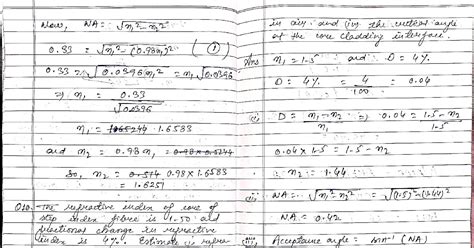 Now, NA = √n₁²-n₂²
0.33 = √n₁² - (0.98n₁)² (1)
0.33 = √0.0396n₁² = n₁√0.0396
⇒ n₁ = 0.33
√0.0396
n₁ = 1.6583
and n₂ = 0.98 n₁
So, n₂ = 0.98 × 1.6583
= 1.6251
Q10. The refractive index of core of
step index fibre is 1.50 and
fractional change in refractive
index is 4%. Estimate
in air and (iv) the critical angle
of the core cladding interface.
Ans n₁ = 1.5 and D = 4%
D = 4% = 4 = 0.04
100
(i) D = n₁ - n₂ ⇒ 0.04 = 1.5 - n₂
n₁ 1.5
0.04 × 1.5 = 1.5 - n₂
n₂ = 1.44
(ii) NA = √n₁² - n₂² = √(1.5)² - (1.44)²
NA = 0.42
(iii) Acceptance angle = sin⁻¹ (NA)